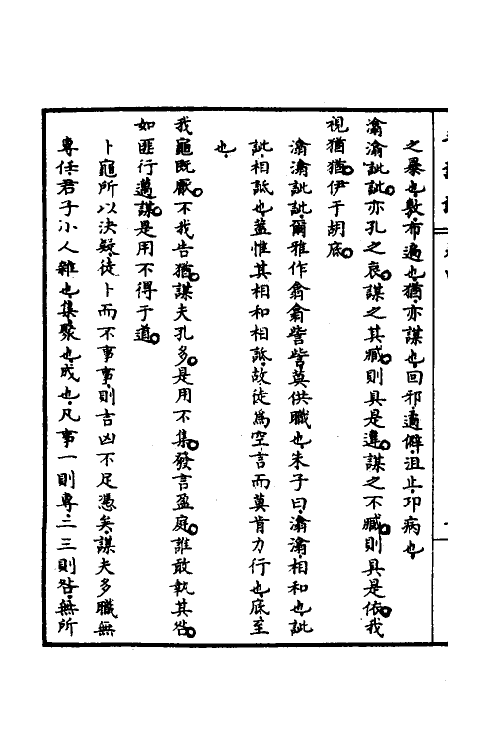 之暴也敷布遍也猶亦謀也回邪遹僻沮止卭病也
潝潝訿訿亦孔之哀謀之其臧則具是違謀之不臧則具是依我
視謀猶伊于胡底
潝潝訿訿爾雅作翕翕訾訾莫供職也朱子曰潝潝相和也訿
訿相詆也蓋惟其相和相詆故徒爲空言而莫肯力行也底至
也
我龜既厭不我告猶謀夫孔多是用不集發言盈庭誰敢執其咎
如匪行邁謀是用不得于道
卜龜所以決疑徒卜而不事事則吉凶不足憑矣謀夫多職無
專任君子小人雜也集聚也成也凡事一則專二三則咎無所